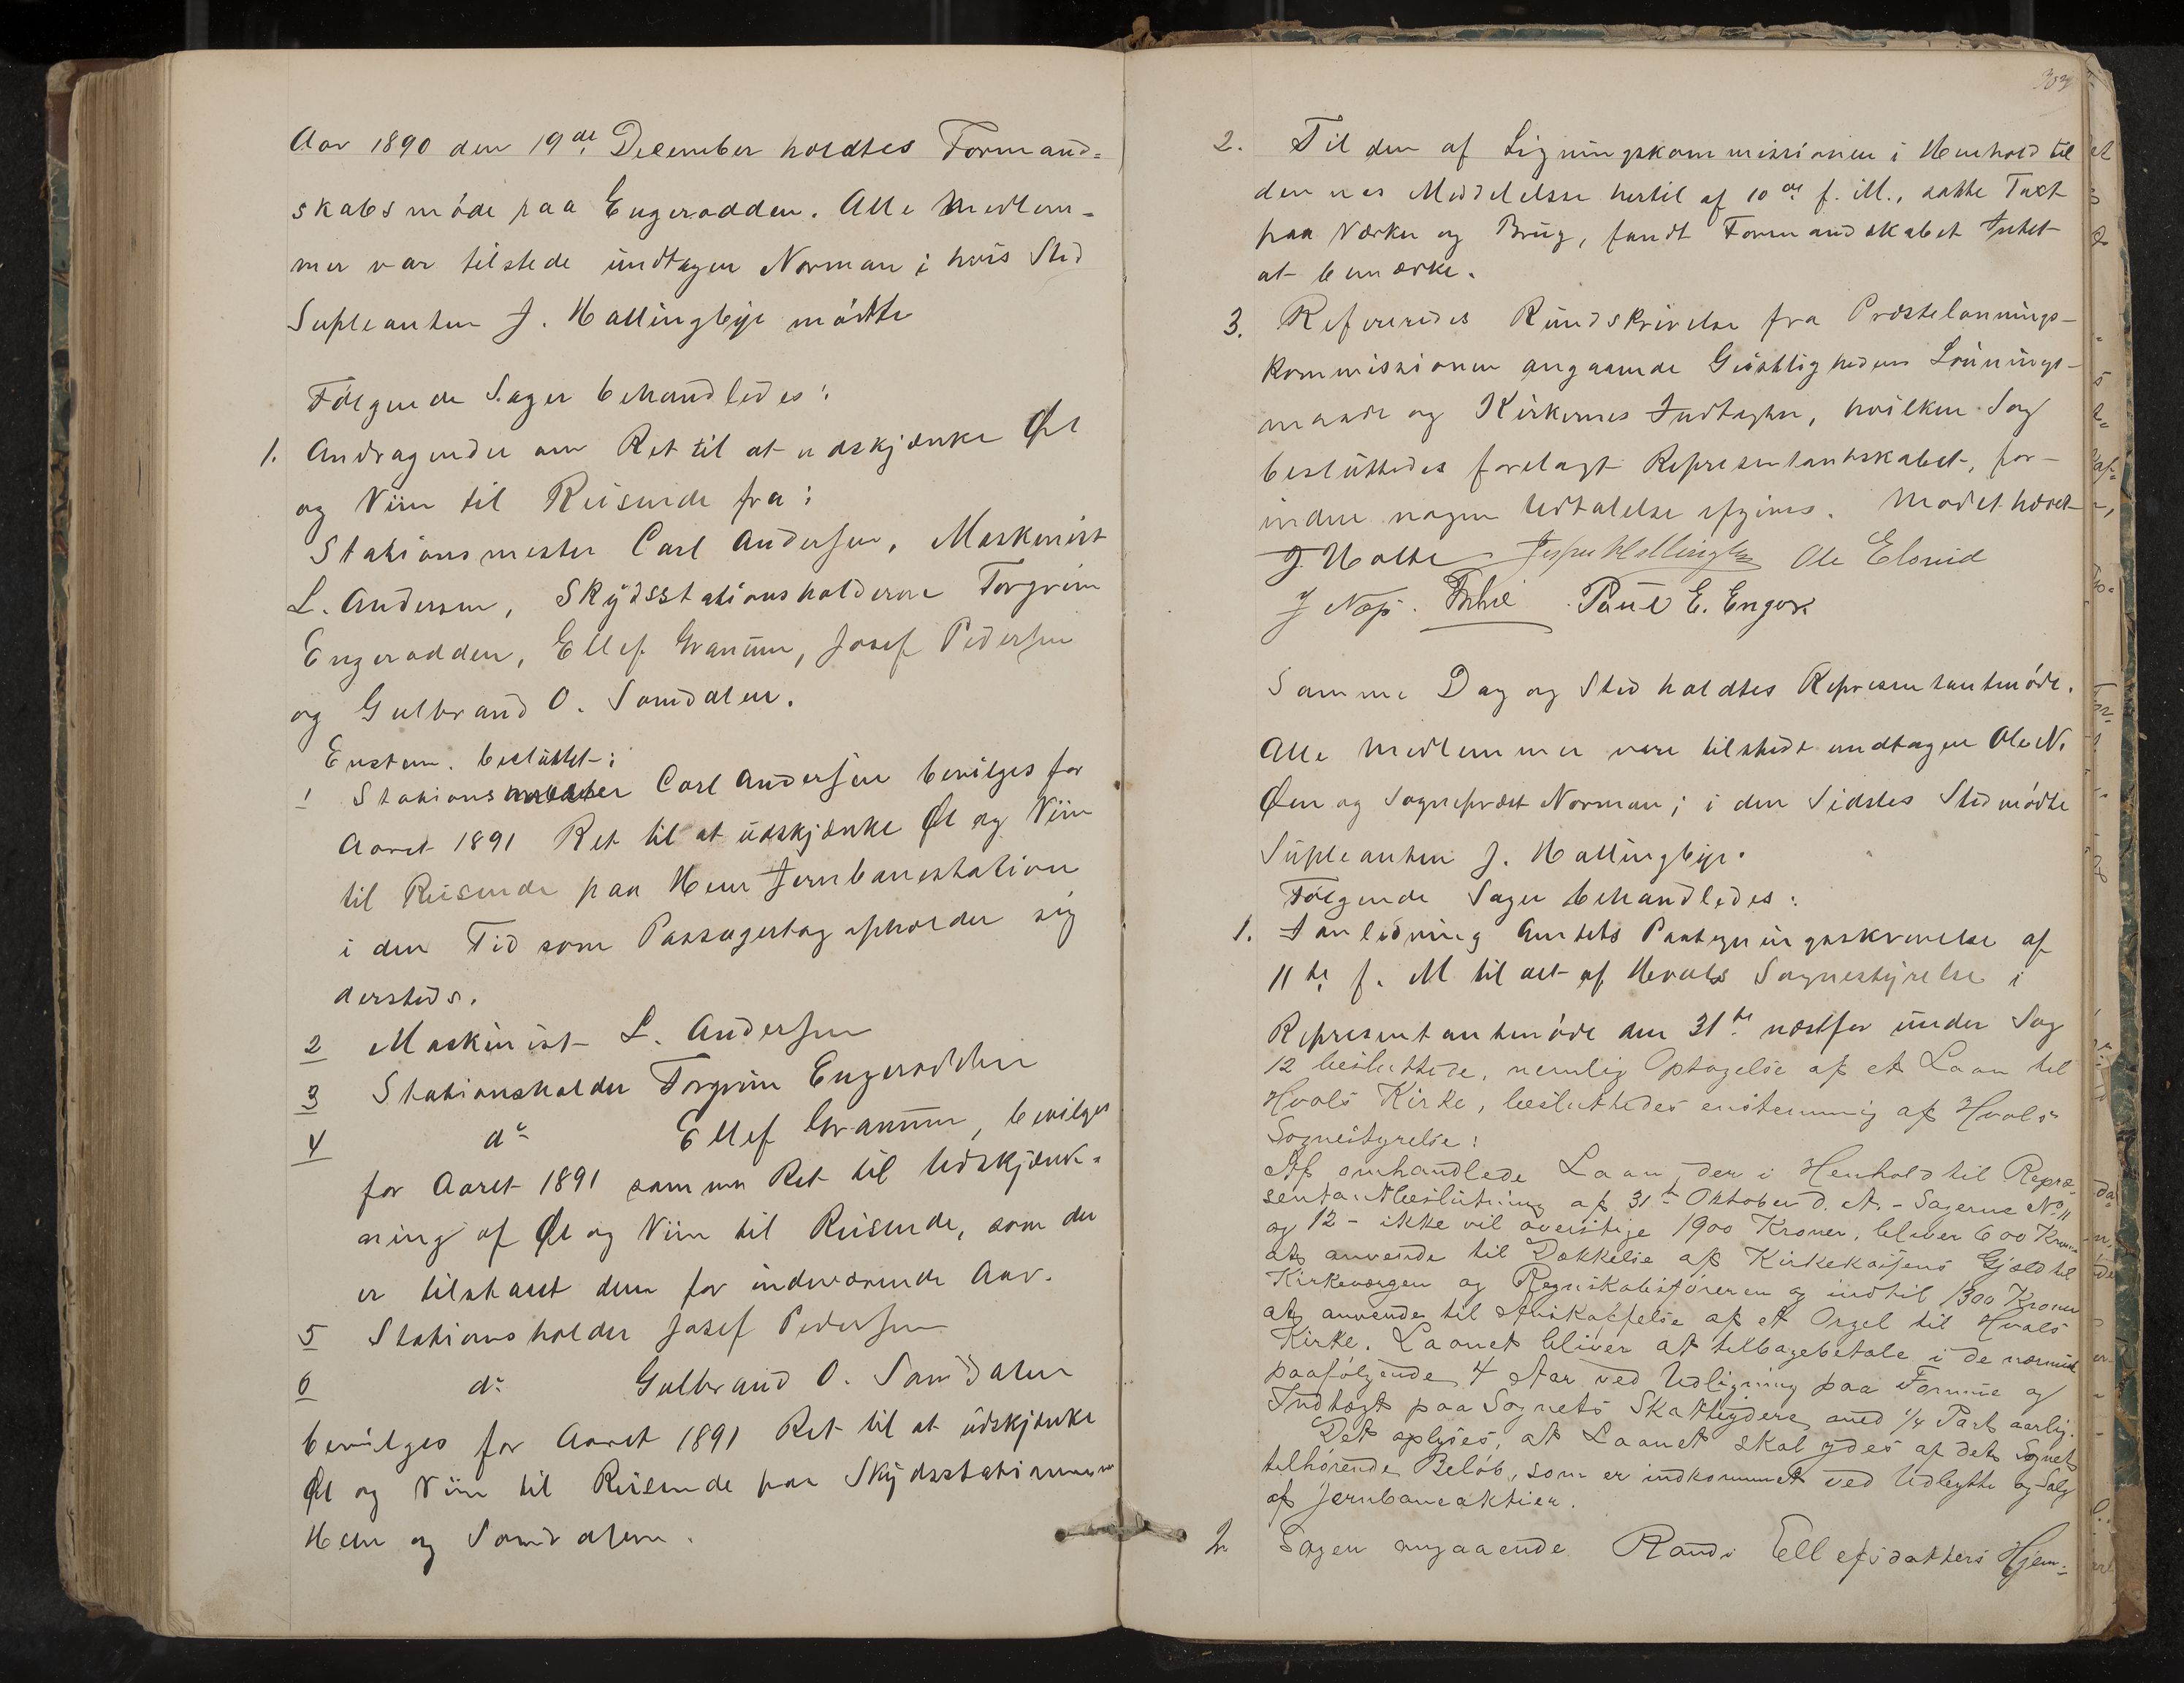 Aar 1890 den 19de December holdtes Formand=
skabsmöde paa Engerodden. Alle Medlem-
mer var tilstede undtagen Norman i hvis Sted
Supleanten J. Hallingbye mödte
Fölgende Sager behandledes:
1. Andragender om Ret til at udskjænke Øl
og Viin til Reisende fra:
Stationsmester Carl Andersen, Maskinist
L. Andersen, Skydsstationsholderne Torgrim
Engerodden, Ellef Granum, Josef Pedersen
og Gulbrand O. Somdalen.
Enstem. besluttet:
1 Stationsmester Carl Andersen bevilges for
Aaret 1891 Ret til at udskjænke Øl og Viin
til Reisende paa Heen Jernbanestation
i den Tid som Passagertog opholder sig
dersteds.
2 Maskinist L. Andersen
3 Stationsholder Torgrim Engerodden
4 do Ellef Granum, bevilges
for Aaret 1891 samme Ret til Udskjænk=
ning af Øl og Viin til Reisende, som der
er tilstaaet dem for indeværende Aar.
5 Stationsholder Josef Pedersen
6 do Gulbrand O. Samdalen
bevilges for Aaret 1891 Ret til at udskjænke
Øl og Viin til Reisende paa Skydsstationerne
Heen og Somdalen.
2. Til den af Ligningskommissionen i Henhold til
dennes Meddelelse hertil af 10de f. M., satte Taxt
paa Værker og Brug, fandt Formandskabet Intet
at bemærke.
3. Refereredes Rundskrivelse fra Præstelønnings-
kommissionen angaaende Geistlighedens Lönnings-
maade og Kirkernes Indtægter, hvilken Sag
besluttedes forelagt Representantskabet, for-
inden nogen Udtalelse afgives. Mödet hævet
J. Holte Jesper Hallingby Ole Elsrud
J Næs. Paul E. Enger.
Samme Dag og Sted holdtes Representantmöde.
Alle Medlemmer vare tilstede undtagen Ole N.
Øen og Sognepræst Norman; i den Sidstes Sted mödte
Supleanten J. Hallingbye.
Fölgende Sager behandledes:
1. I anledning Amtets Paategningsskrivelse af
11te f. M til det af Hvals Sognestyrelse i
Representantmöde den 31te næstfor under Sag
12 besluttede, nemlig Optagelse af et Laan til
Hvals Kirke, besluttedes enstemmig af Hvals
Sognestyrelse:
Af omhandlede Laan, der i Henhold til Repræ-
sentantbeslutning af 31te Oktober d. A. - Sagerne No 11
og 12 - ikke vil overstige 1900 Kroner, bliver 600 Kroner
at anvende til Dækkelse af Kirkekassens Gjæld til
Kirkeværgen og Regnskabsföreren og indtil 1300 Kroner
at anvende til Anskaffelse af et Orgel til Hvals
Kirke. Laanet bliver at tilbagebetale i de nærmest
paafölgende 4 Aar ved Udligning paa Formue og
Indtægt paa Sognets Skatteydere med 1/4 Part aarlig.
Det oplyses, at Laanet skal ydes af det Sognet
tilhörende Belöb, som er indkommet ved Udbytte og Salg
af Jernbaneaktier.
2. Sagen angaaende Randi Ellefsdatters Hjem-